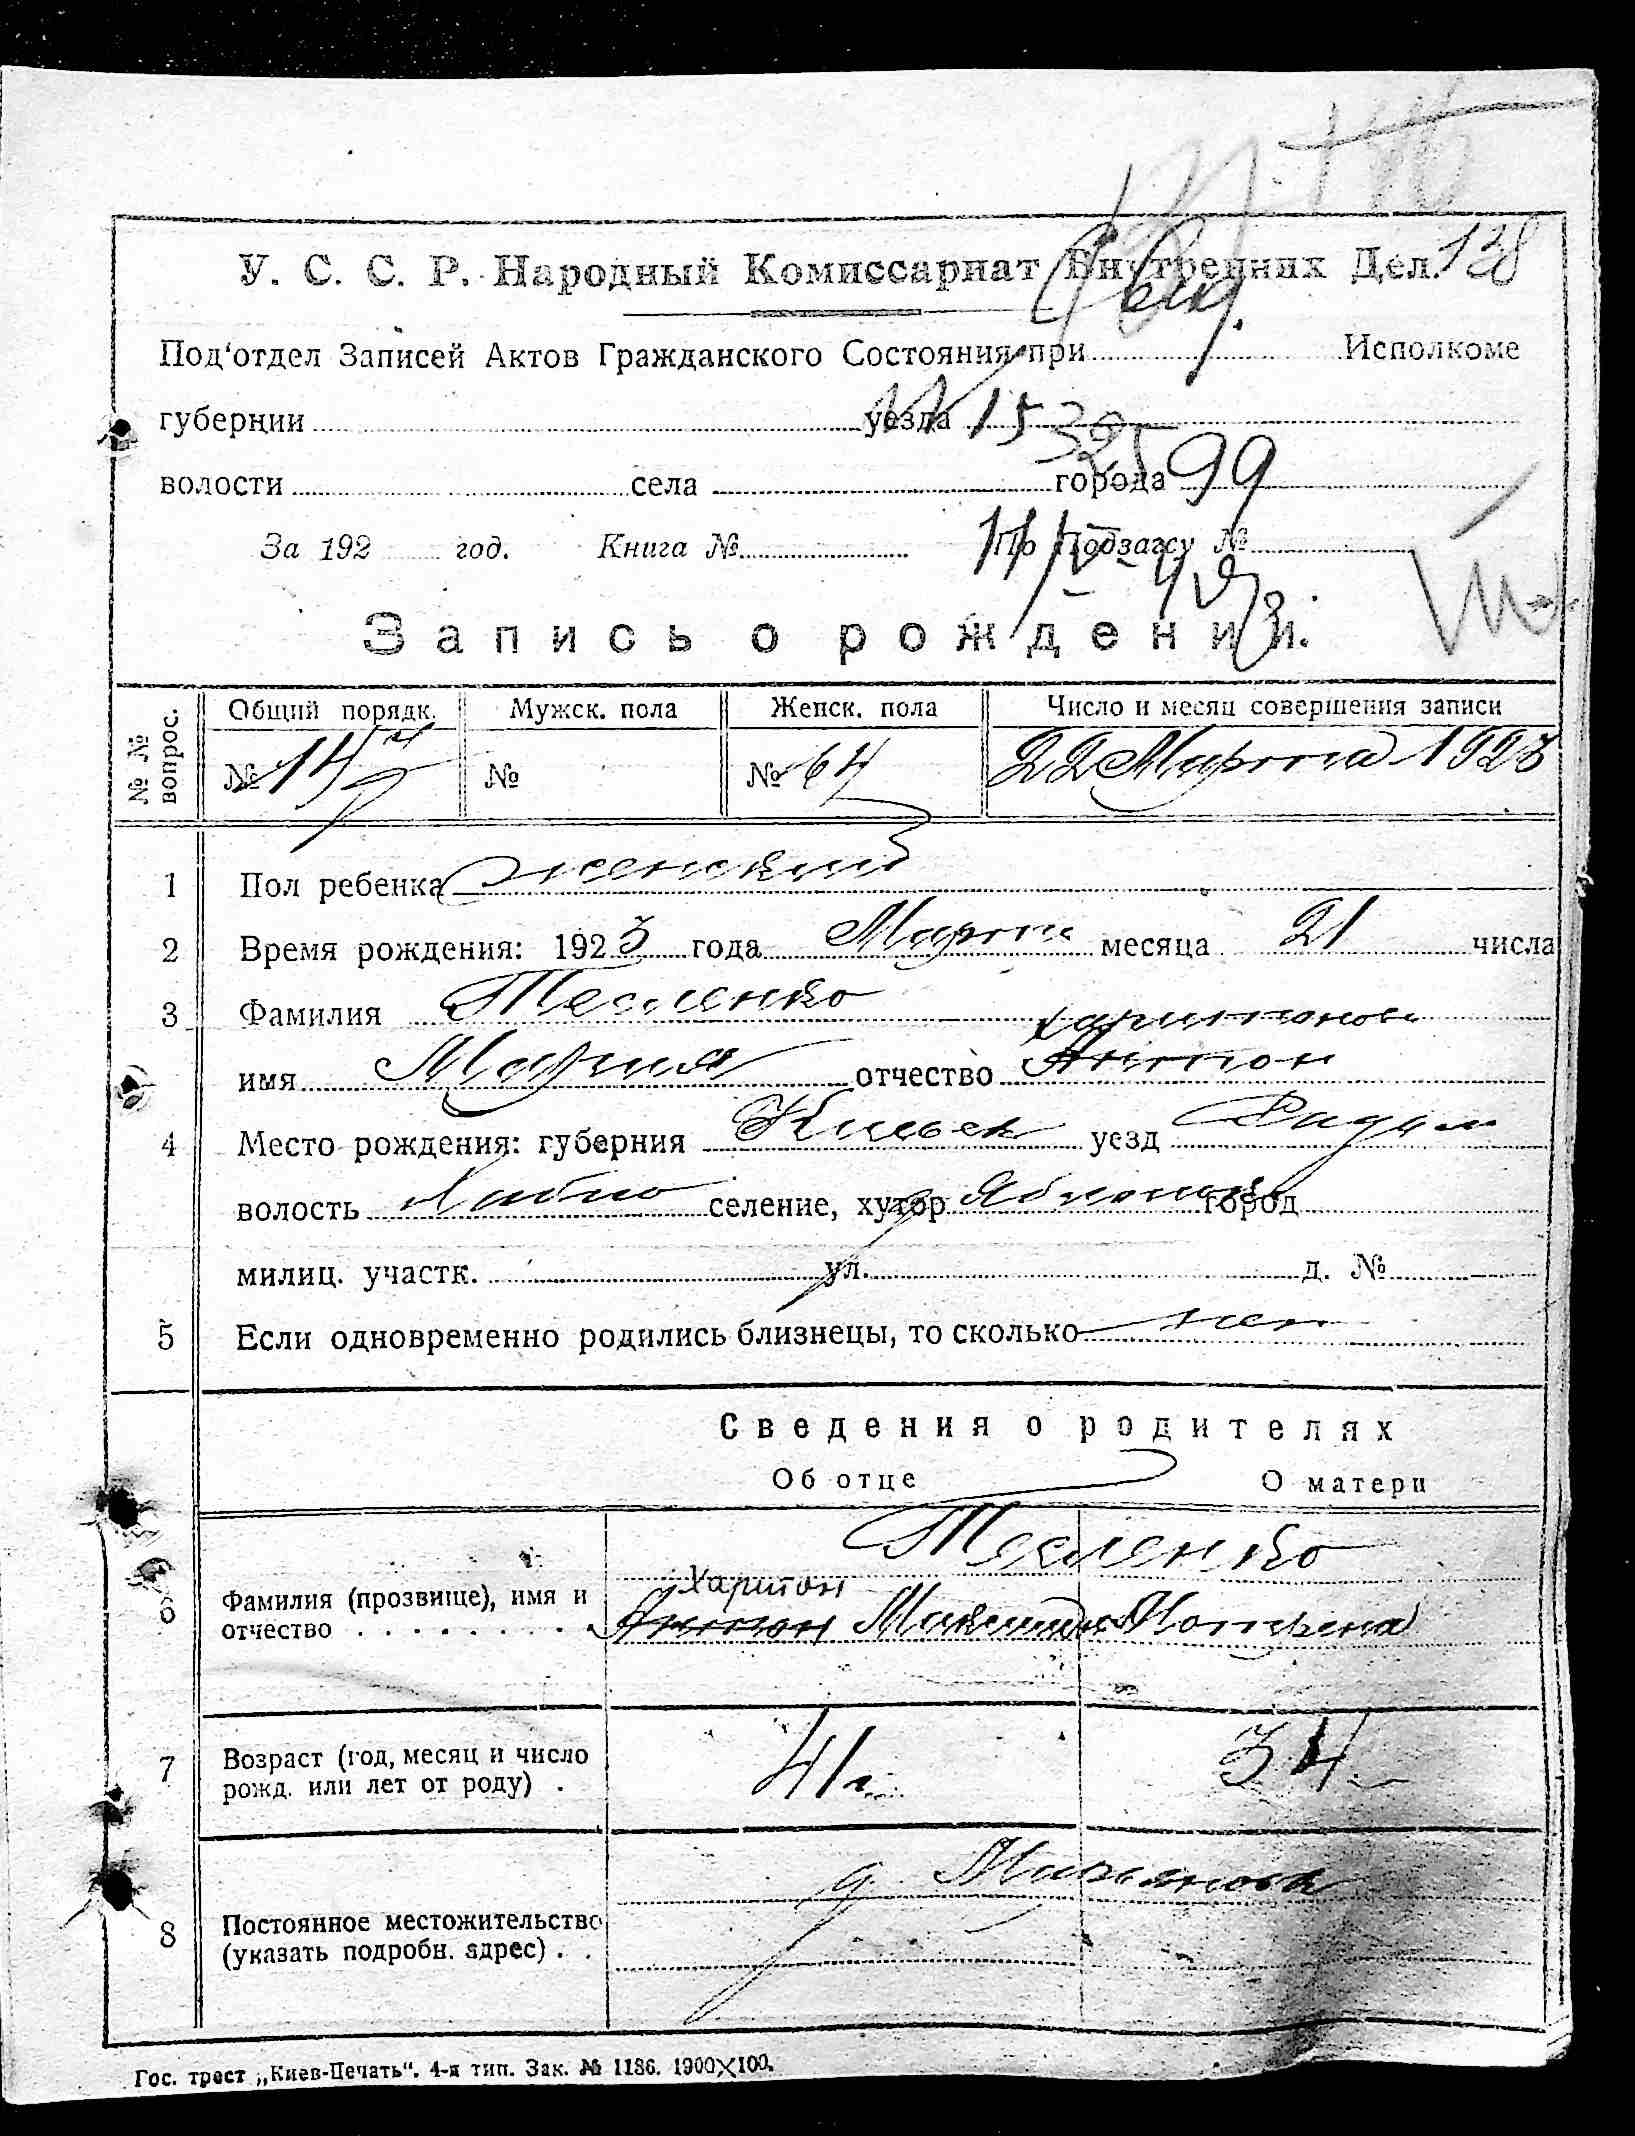 128
У. С. С. Р. Народный Комиссариат Внутренних Дел.
Под'отдел Записей Актов Гражданского Состояния при Исполкоме
губернии уезда
1532599
волости села города
За 192 год. Книга № По Подзагсу №
Запись о рождении.
№ № вопрос. Общий порядк. Мужск. пола Женск. пола Число и месяц совершения записи
№ № № 64 22 Марта 1923
1 Пол ребенка женский
2 Время рождения: 1923 года Марта месяца 21 числа
3 Фамилия Тесленко
Харитонов
имя Мария отчество Антон
4 Место рождения: губерния Киевск уезд Радом
волость Хабно селение, хутор город
милиц. участк. ул. д. №
5 Если одновременно родились близнецы, то сколько нет
Сведения о родителях
Об отце О матери
Тесленко
Харитон
6 Фамилия (прозвище), имя и
отчество Антон Максимов Мотрена
7 Возраст (год, месяц и число
рожд. или лет от роду) . 41 г. 34
д
8 Постоянное местожительство
(указать подробн. адрес) . .
Гос. трест „Киев-Печать". 4-я тип. Зак. № 1186. 1900×100.